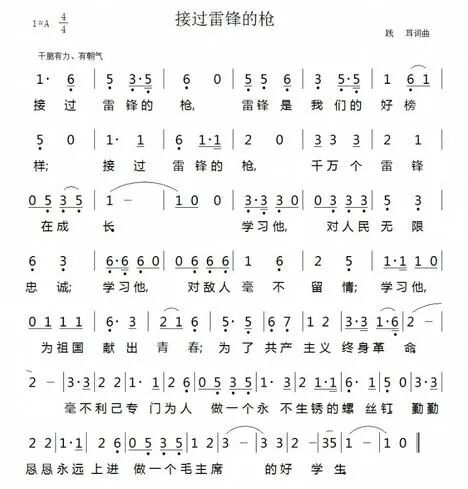 接过雷锋的枪
1=A 4/4
践 耳词曲
干脆有力、有朝气
1· 6 | 5 3·5 | 6 0 | 5 3·5 | 2 3·5 | 1 6 1 |
接 过 雷 锋 的 枪, 雷 锋 是 我 们 的 好 榜
5 0 | 1· 1 | 6 1·1 | 2 0 | 3 3 3 | 2 3 |
样; 接 过 雷 锋 的 枪, 千 万 个 雷 锋
0 5 3 5 | 1 – | 1 0 0 | 3·3 3 0 | 0 3 2 3 | 7 5 |
在 成 长 学 习 他, 对 人 民 无 限
6 3 | 6·6 6 0 | 0 6 6 6 | 1 6 | 2 5 | 1·1 1 0 |
忠 诚; 学 习 他, 对 敌 人 毫 不 留 情; 学 习 他,
0 2 0 1 | 3· 3 | 2 1 6 | 5· 5 | 6 7 | 1 2 | 3 3 | 1·6 | 2 – |
为 祖 国 献 出 青 春; 为 了 共 产 主 义 终 身 革 命
2 – | 3·3 | 2 2 | 1·2 | 2 6 | 0 5 3 5 | 5 3·5 | 2 2 | 3 2 | 3·3 |
毫 不 利 己 专 门 为 人 做 一 个 永 不 生 锈 的 螺 丝 钉 勤 勤
2 2 | 1·1 | 2 6 | 0 5 3 5 | 5 3 5 | 2 – | 2 – | 3 5 | 1 – | 1 0 ‖
恳 恳 永 远 上 进 做 一 个 毛 主 席 的 好 学 生